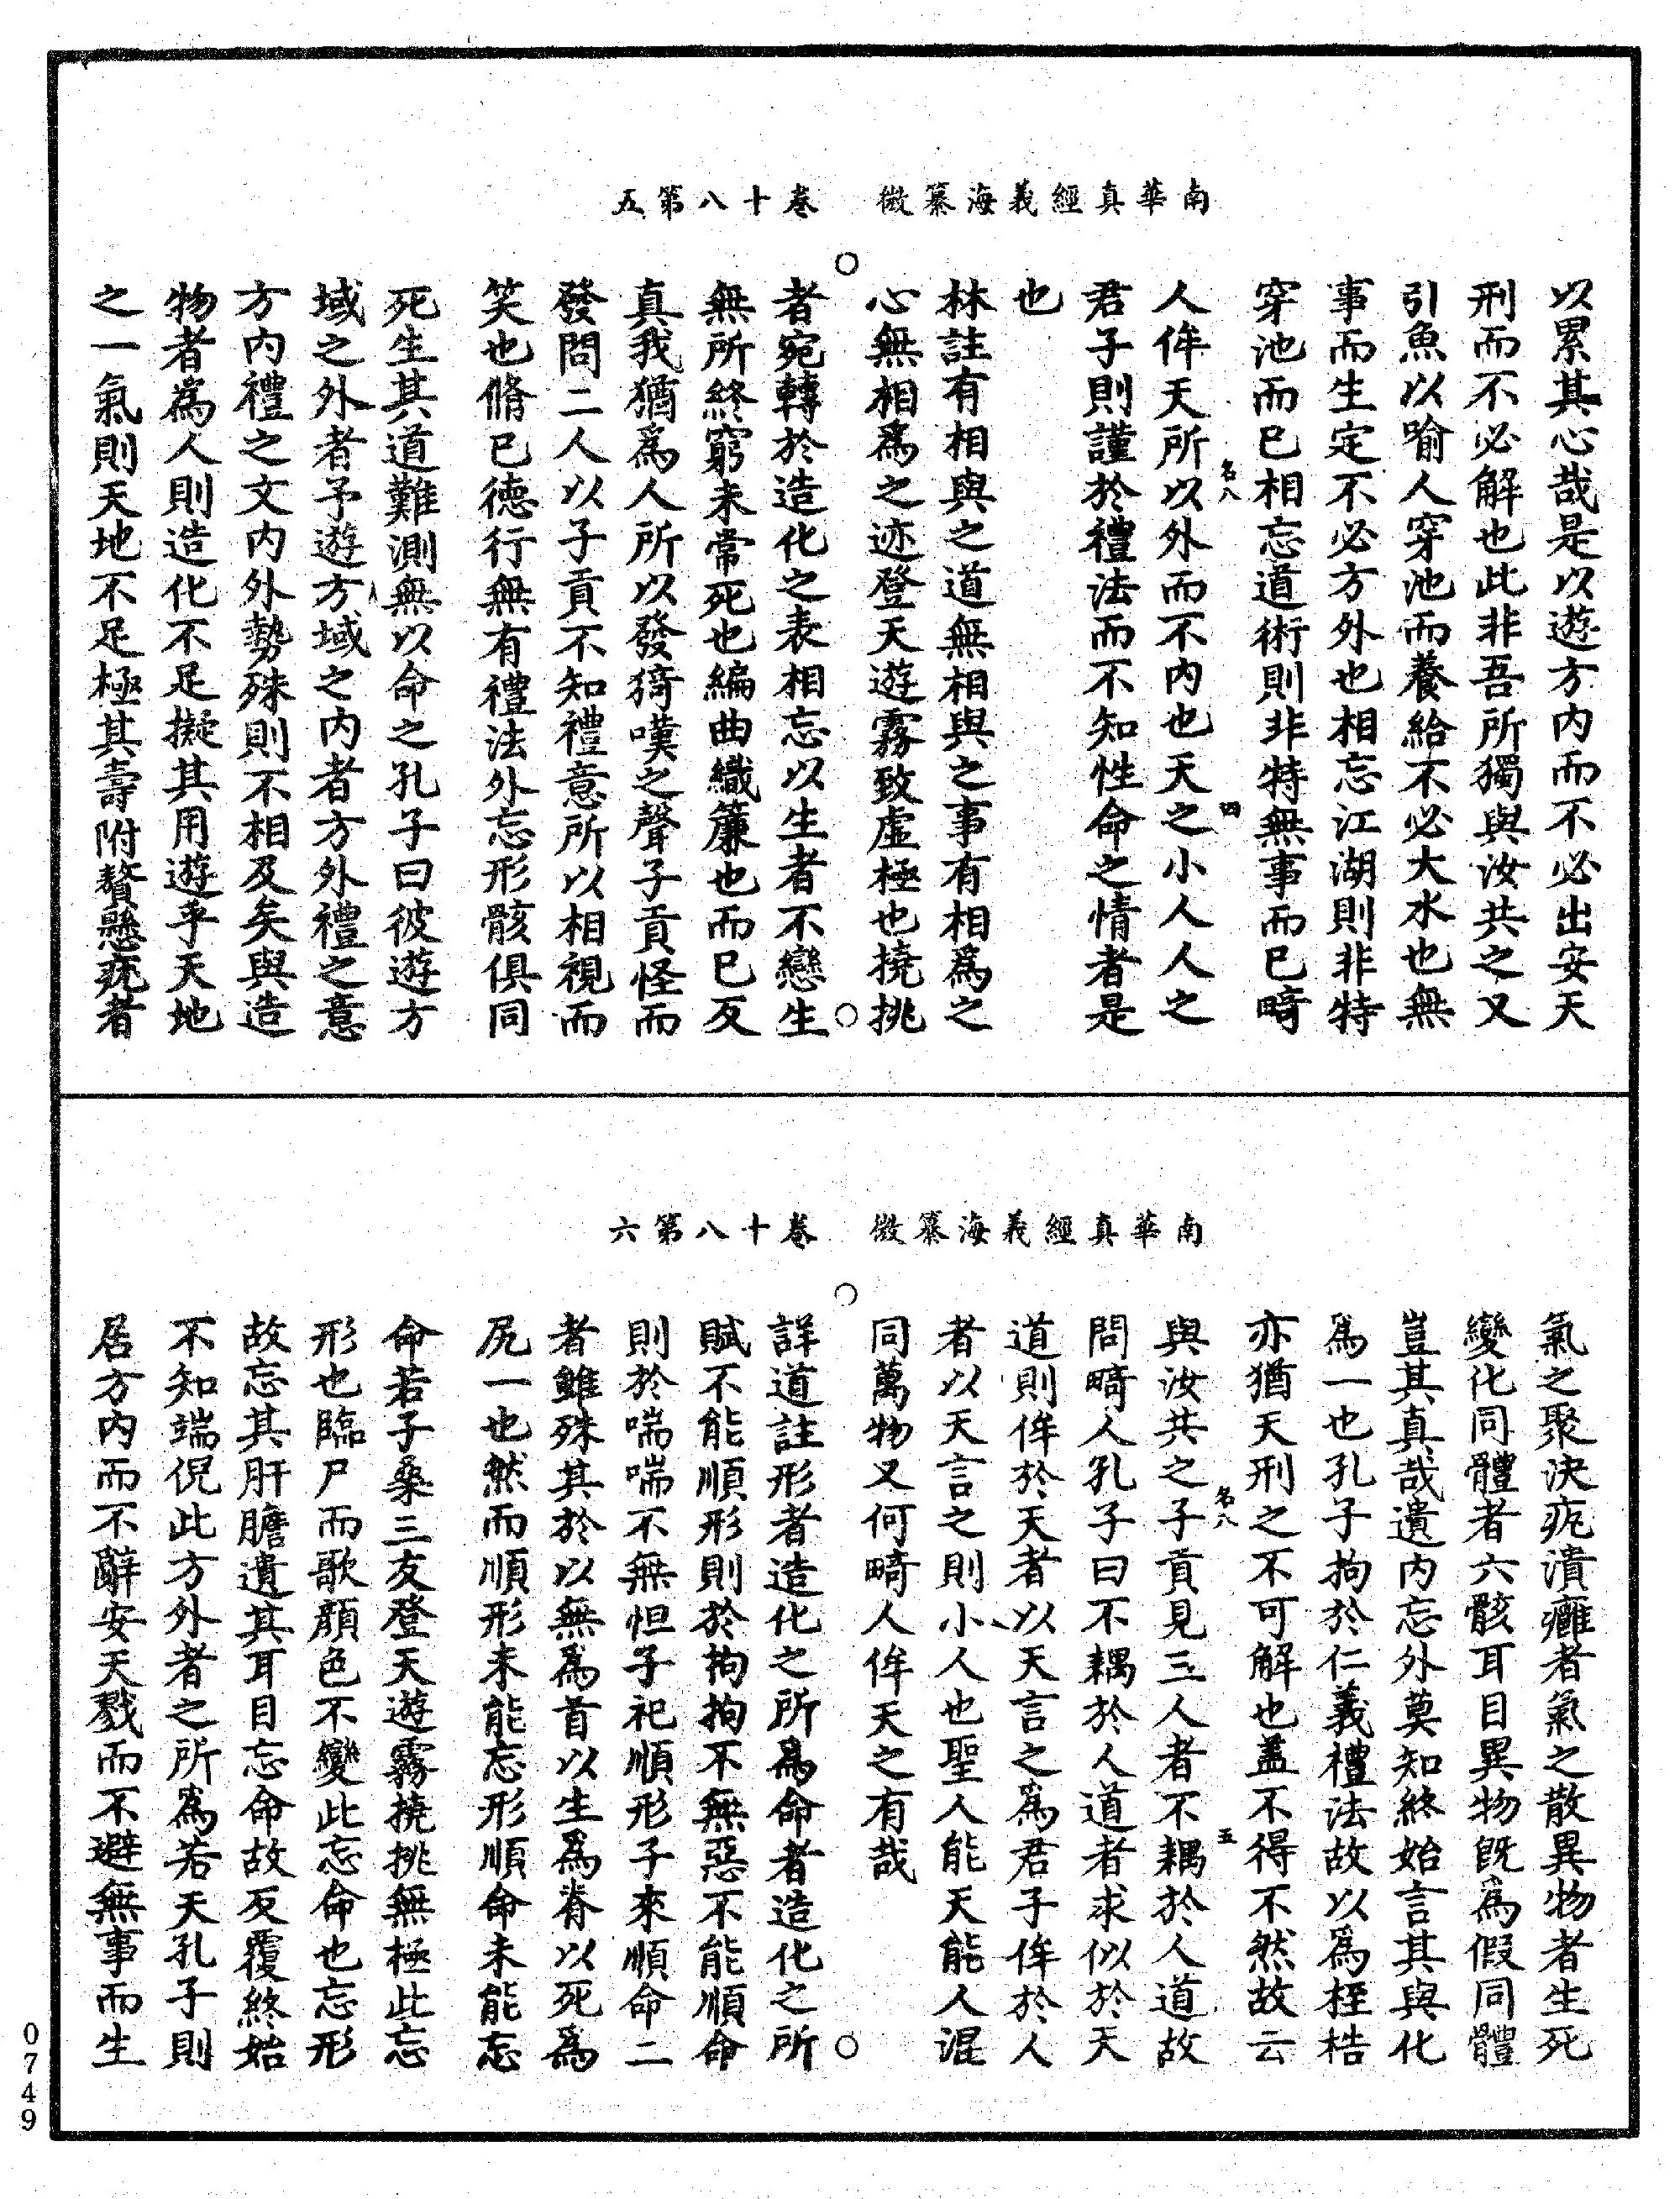 南華真經義海纂微　卷十八第五
以累其心哉是以遊方内而不必出安天
刑而不必解也此非吾所獨與汝共之又
引魚以喻人穿池而養給不必大水也無
事而生定不必方外也相忘江湖則非特
穿池而已相忘道術則非特無事而已畸
名八　四
人侔天所以外而不内也天之小人人之
君子則謹於禮法而不知性命之情者是
也
林註有相與之道無相與之事有相爲之
心無相爲之迹登天遊霧致虛極也撓挑
者宛轉於造化之表相忘以生者不戀生
無所終窮未常死也編曲織簾也而已反
真我猶爲人所以發猗嘆之聲子貢怪而
發問二人以子貢不知禮意所以相視而
笑也脩已德行無有禮法外忘形骸俱同
死生其道難測無以命之孔子曰彼遊方
域之外者予遊方域之内者方外禮之意
方内禮之文内外勢殊則不相及矣與造
物者爲人則造化不足擬其用遊乎天地
之一氣則天地不足極其壽附贅懸疣者
南華真經義海纂微　卷十八第六
氣之聚決疣潰癰者氣之散異物者生死
變化同體者六骸耳目異物既爲假同體
豈其真哉遺内忘外莫知終始言其與化
爲一也孔子拘於仁義禮法故以爲桎梏
亦猶天刑之不可解也蓋不得不然故云
名八　五
與汝共之子貢見三人者不耦於人道故
問畸人孔子曰不耦於人道者求似於天
道則侔於天者以天言之爲君子侔於人
者以天言之則小人也聖人能天能人混
同萬物又何畸人侔天之有哉
詳道註形者造化之所爲命者造化之所
賦不能順形則於拘拘不無惡不能順命
則於喘喘不無怛子祀順形子來順命二
者雖殊其於以無爲首以生爲脊以死爲
尻一也然而順形未能忘形順命未能忘
命若子桑三友登天遊霧撓挑無極此忘
形也臨尸而歌顔色不變此忘命也忘形
故忘其肝膽遺其耳目忘命故反覆終始
不知端倪此方外者之所爲若夫孔子則
居方内而不辭安天戮而不避無事而生
0749